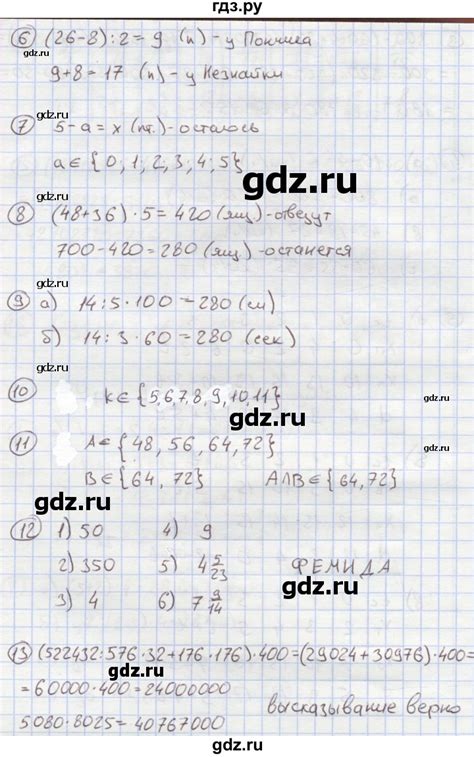 гдз.ру
6 (26-8):2=9 (п) - у Пончика
9+8=17 (п) - у Незнайки
7 5-а=х (шт.)-осталось
а∈{0;1;2;3;4;5}
gdz.ru
8 (48+36)·5=420 (ящ)-отвезут
700-420=280 (ящ)-останется
gdz.ru
9 а) 14:5·100=280 (см)
б) 14:3·60=280 (сек)
10 k∈{5,6,7,8,9,10,11}
gdz.ru
11 А∈{48,56,64,72}
В∈{64,72} А∩В∈{64,72}
gdz.ru
12 1) 50 4) 9
2) 350 5) 4 5/23 ФЕМИДА
3) 4 6) 7 9/14
gdz.ru
13 (522432:576·32+176·176)·400=(29024+30976)·400=
=60000·400=24000000
5080·8025=40767000 высказывание верно
gdz.ru